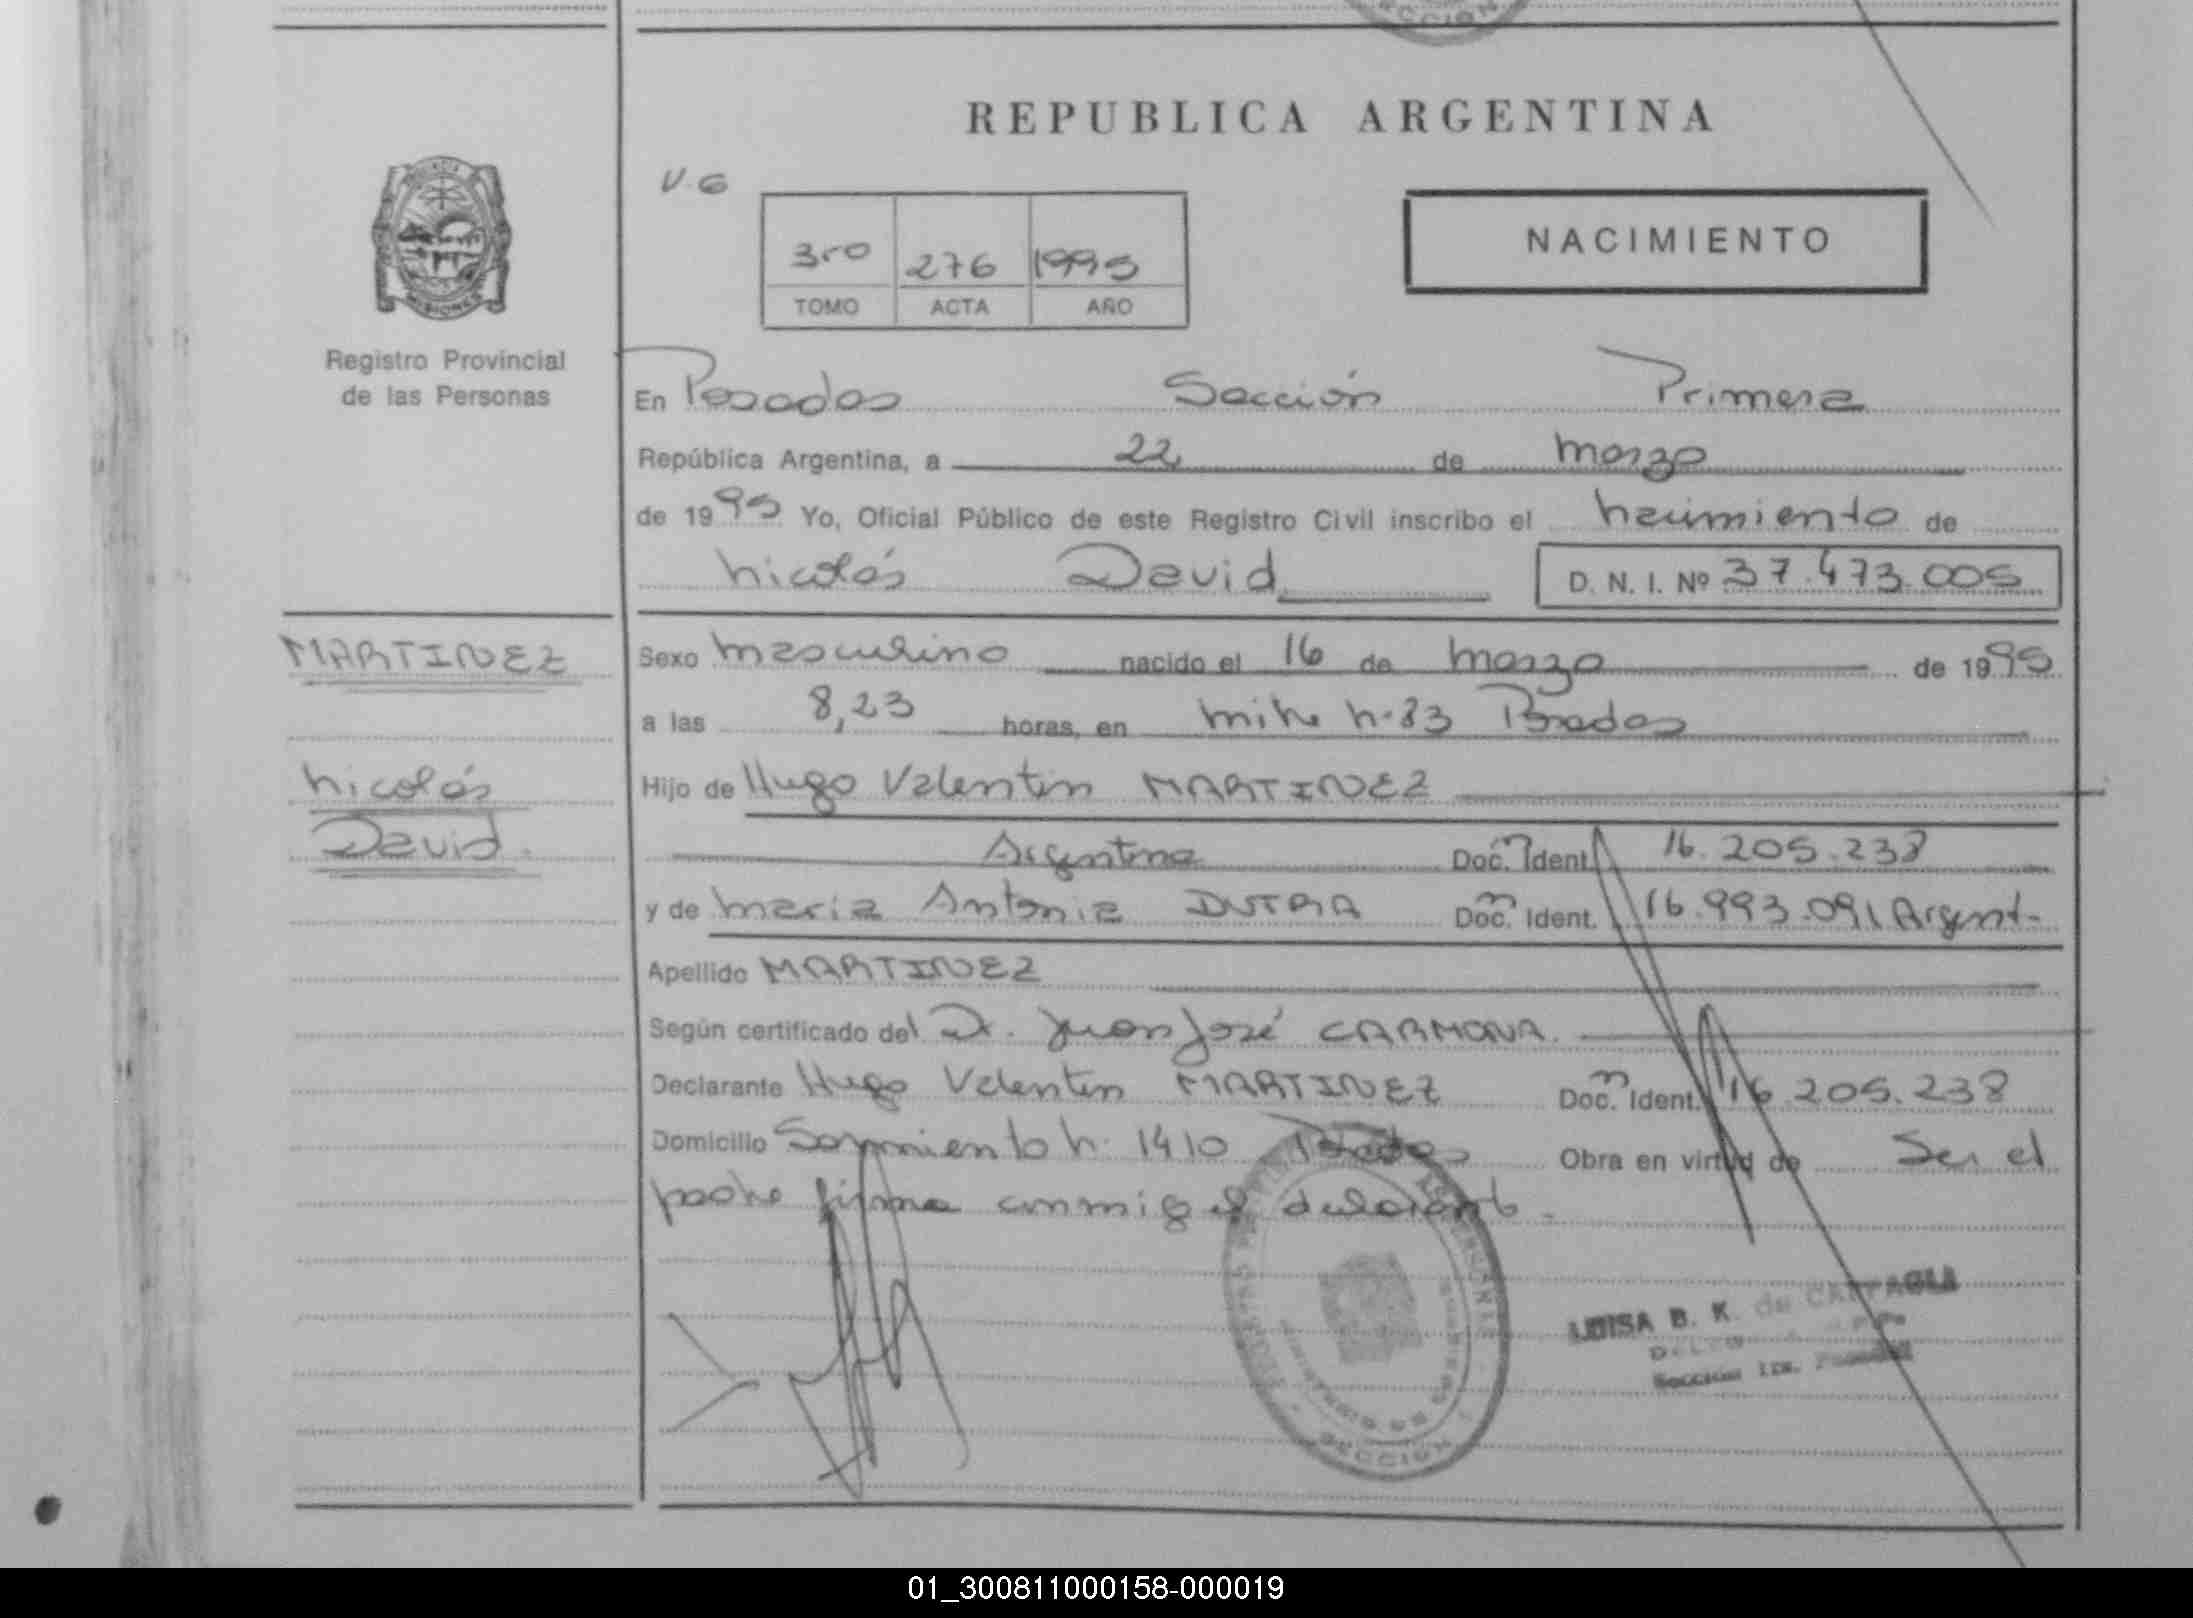 CCION
REPUBLICA ARGENTINA
V. G
NACIMIENTO
3ro 276 1995
TOMO ACTA AÑO
MISIONES
Registro Provincial
de las Personas
En Posadas Sección Primera
República Argentina, a 22 de marzo
de 1995 Yo, Oficial Público de este Registro Civil inscribo el nacimiento de
Nicolás David D. N. I. Nº 37.473.005
MARTINEZ
Nicolás
David.
Sexo masculino nacido el 16 de marzo de 1995
a las 8,23 horas, en mitre n.83 Posadas
Hijo de Hugo Valentin MARTINEZ
Argentina Doc. Ident. 16.205.238
y de Maria Antonia DUTRA Doc. Ident. 16.993.091 Argent.
Apellido MARTINEZ
Según certificado del Dr. Juan José CARMONA.
Declarante Hugo Valentin MARTINEZ Doc. Ident. 16.205.238
Domicilio Sarmiento n. 1410 Posadas Obra en virtud de Ser el
padre firma conmigo el declarante.
LUISA B. K. de
Sección 1ra.
MINISTERIO DE GOBIERNO
SECCION
01_300811000158-000019